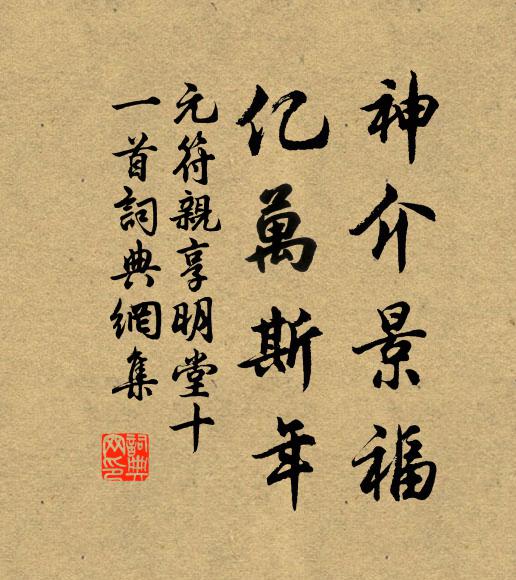 神介景福
亿萬斯年
元符親享明堂十
一首詞典網集
詞典网印